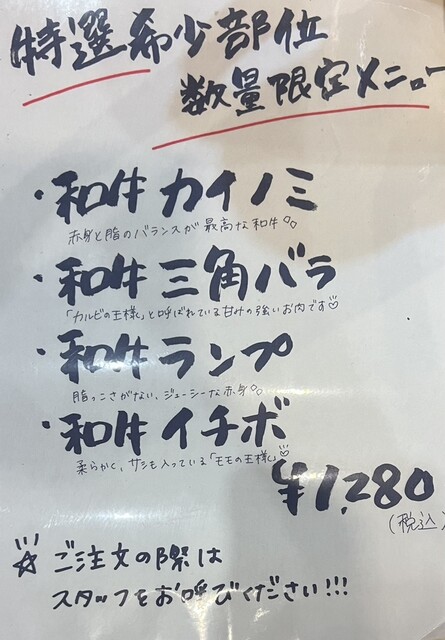 特選希少部位
数量限定メニュー
・和牛 カイノミ
赤身と脂のバランスが最高な和牛
・和牛 三角バラ
「カルビの王様」と呼ばれている甘みの強いお肉です♡
・和牛 ランプ
脂っこさがない、ジューシーな赤身
・和牛 イチボ
柔らかく、サシも入っている「モモの王様」♡
¥1,280
(税込)
☆ ご注文の際は
スタッフをお呼びください!!!